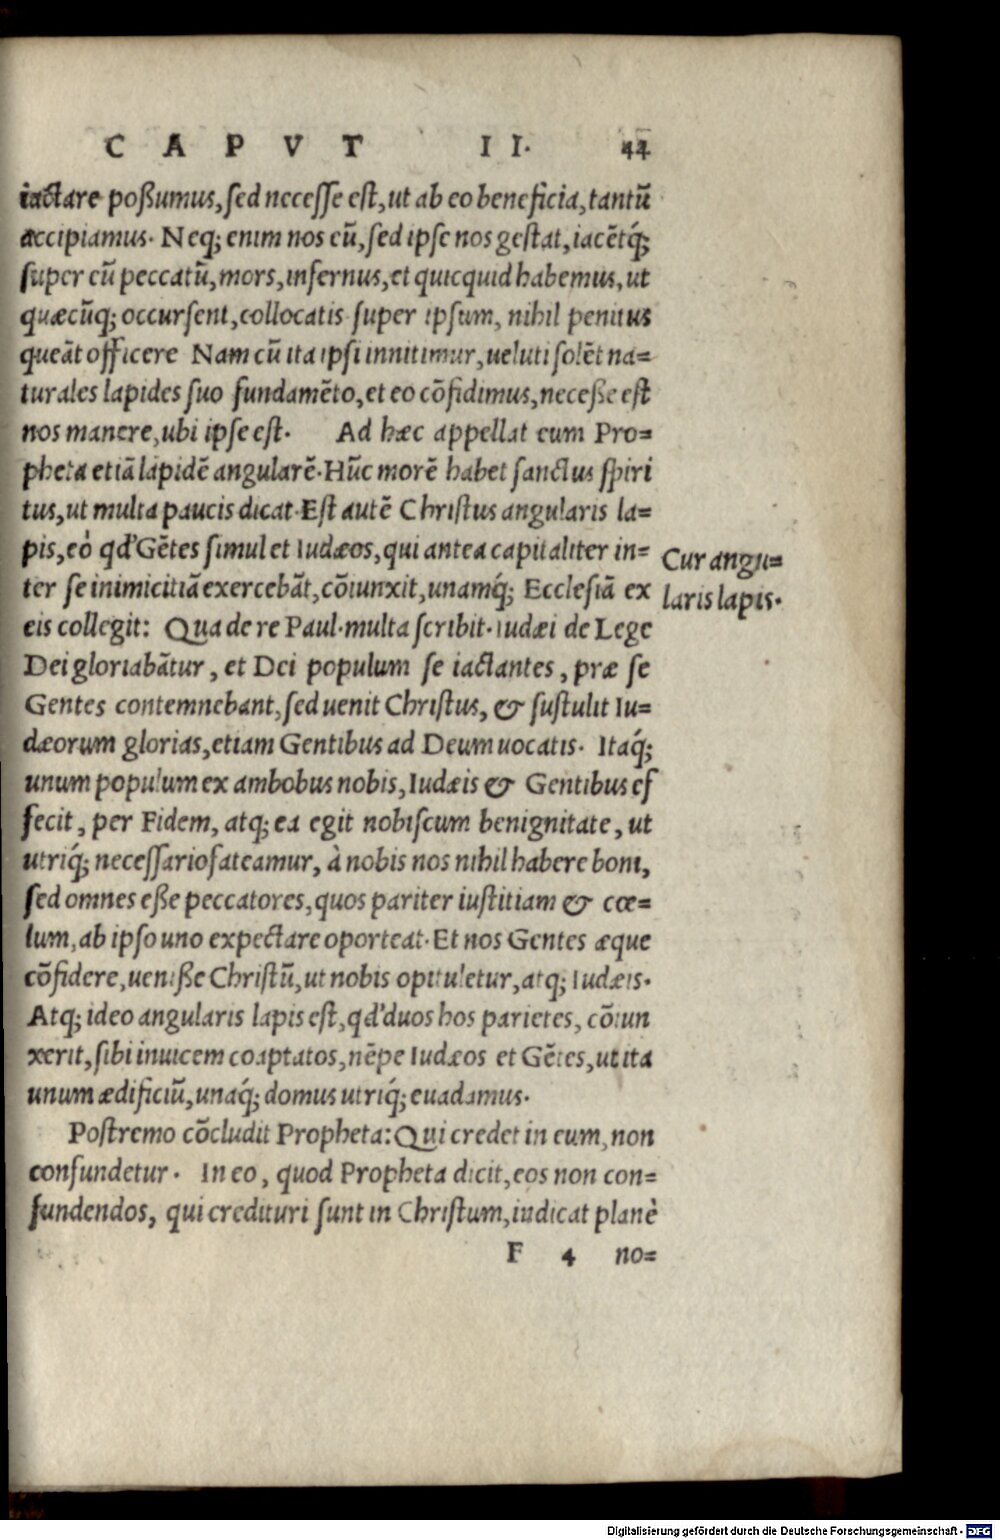 CAPVT II. 44
iactare poßumus, sed necesse est, ut ab eo beneficia, tantũ
accipiamus. Neq; enim nos eũ, sed ipse nos gestat, iacẽtq́;
super eũ peccatũ, mors, infernus, et quicquid habemus, ut
quæcũq; occursent, collocatis super ipsum, nihil penitus
queãt officere Nam cũ ita ipsi innitimur, ueluti solẽt na=
turales lapides suo fundamẽto, et eo cõfidimus, neceße est
nos manere, ubi ipse est. Ad hæc appellat eum Pro=
pheta etiã lapidẽ angularẽ. Hũc morẽ habet sanctus spiri
tus, ut multa paucis dicat. Est autẽ Christus angularis la=
pis, eò qd' Gẽtes simul et Iudæos, qui antea capitaliter in=
ter se inimicitiã exercebãt, cõiunxit, unamq́; Ecclesiã ex
eis collegit: Qua de re Paul. multa scribit. Iudæi de Lege
Dei gloriabãtur, et Dei populum se iactantes, præ se
Gentes contemnebant, sed uenit Christus, & sustulit Iu=
dæorum glorias, etiam Gentibus ad Deum uocatis. Itaq́;
unum populum ex ambobus nobis, Iudæis & Gentibus ef
fecit, per Fidem, atq; ea egit nobiscum benignitate, ut
utriq́; necessario fateamur, à nobis nos nihil habere boni,
sed omnes eße peccatores, quos pariter iustitiam & cœ=
lum, ab ipso uno expectare oporteat. Et nos Gentes æque
cõfidere, ueniße Christũ, ut nobis opituletur, atq; Iudæis.
Atq; ideo angularis lapis est, qd' duos hos parietes, cõiun
xerit, sibi inuicem coaptatos, nẽpe Iudæos et Gẽtes, ut ita
unum ædificiũ, unaq́; domus utriq́; euadamus.
Postremo cõcludit Propheta: Qui credet in eum, non
confundetur. In eo, quod Propheta dicit, eos non con=
fundendos, qui credituri sunt in Christum, iudicat planè
F 4 no=
Cur angu=
laris lapis.
Digitalisierung gefördert durch die Deutsche Forschungsgemeinschaft - DFG